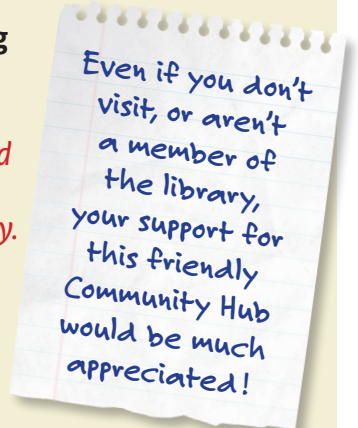 g
d
y.
Even if you don't
visit, or aren't
a member of
the library,
your support for
this friendly
Community Hub
would be much
appreciated!